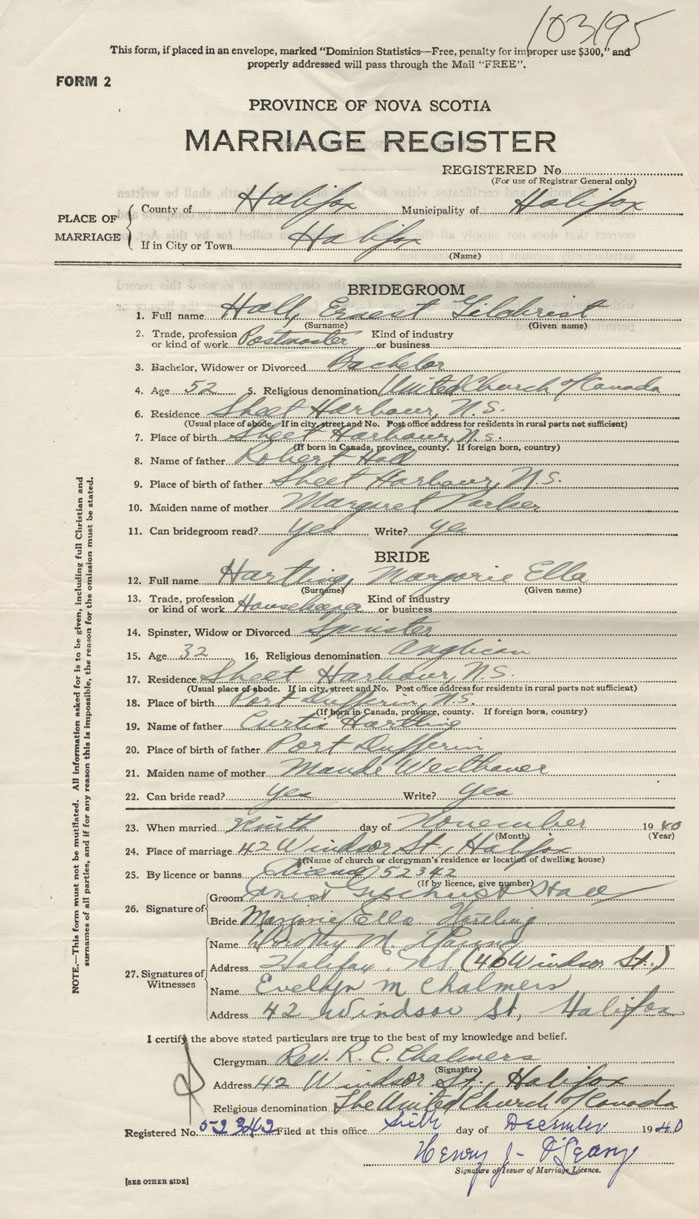 103195
This form, if placed in an envelope, marked "Dominion Statistics—Free, penalty for improper use $300," and
properly addressed will pass through the Mail "FREE".
FORM 2
PROVINCE OF NOVA SCOTIA
MARRIAGE REGISTER
REGISTERED No.
(For use of Registrar General only)
PLACE OF MARRIAGE
County of Halifax Municipality of Halifax
If in City or Town Halifax
(Name)
BRIDEGROOM
1. Full name Hall, Ernest Gilchrist
(Surname) (Given name)
2. Trade, profession or kind of work Postmaster Kind of industry or business
3. Bachelor, Widower or Divorced Bachelor
4. Age 52 5. Religious denomination United Church of Canada
6. Residence Sheet Harbour, N.S.
(Usual place of abode. If in city, street and No. Post office address for residents in rural parts not sufficient)
7. Place of birth Sheet Harbour, N.S.
(If born in Canada, province, county. If foreign born, country)
8. Name of father Robert Hall
9. Place of birth of father Sheet Harbour, N.S.
10. Maiden name of mother Margaret Parker
11. Can bridegroom read? yes Write? yes
BRIDE
12. Full name Hartling, Marjorie Ella
(Surname) (Given name)
13. Trade, profession or kind of work Housekeeper Kind of industry or business
14. Spinster, Widow or Divorced Spinster
15. Age 32 16. Religious denomination Anglican
17. Residence Sheet Harbour, N.S.
(Usual place of abode. If in city, street and No. Post office address for residents in rural parts not sufficient)
18. Place of birth Port Dufferin, N.S.
(If born in Canada, province, county. If foreign born, country)
19. Name of father Curtis Hartling
20. Place of birth of father Port Dufferin
21. Maiden name of mother Maude Westhaver
22. Can bride read? yes Write? yes
23. When married Ninth day of November 1940
(Month) (Year)
24. Place of marriage 42 Windsor St., Halifax
(Name of church or clergyman's residence or location of dwelling house)
25. By licence or banns License 52342
(If by licence, give number)
26. Signature of
Groom Ernest Gilchrist Hall
Bride Marjorie Ella Hartling
27. Signatures of Witnesses
Name Dorothy M.
Address Halifax, N.S. (40 Windsor St.)
Name Evelyn M Chalmers
Address 42 Windsor St, Halifax
I certify the above stated particulars are true to the best of my knowledge and belief.
Clergyman Rev. R. C. Chalmers
(Signature)
Address 42 Windsor St., Halifax
Religious denomination The United Church of Canada
Registered No. 52342 Filed at this office day of December 1940
Henry J. O'Leary
Signature of Issuer of Marriage Licence.
[SEE OTHER SIDE]
NOTE.—This form must not be mutilated. All information asked for is to be given, including full Christian and
surnames of all parties, and if for any reason this is impossible, the reason for the omission must be stated.